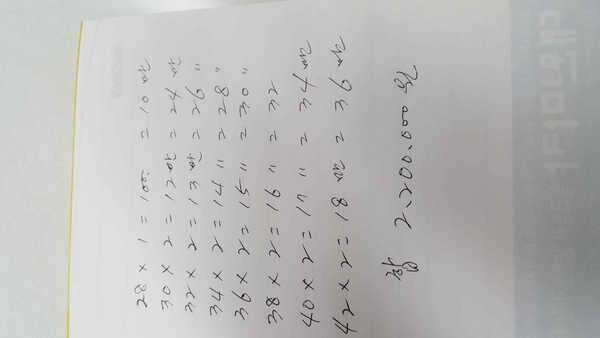 28 × 1 = 10만 = 10만
30 × 2 = 12만 = 24만
32 × 2 = 13만 = 26 "
34 × 2 = 14 " = 28 "
36 × 2 = 15 " = 30 "
38 × 2 = 16 " = 32
40 × 2 = 17 " = 34만
42 × 2 = 18만 = 36만
합 2,200,000원